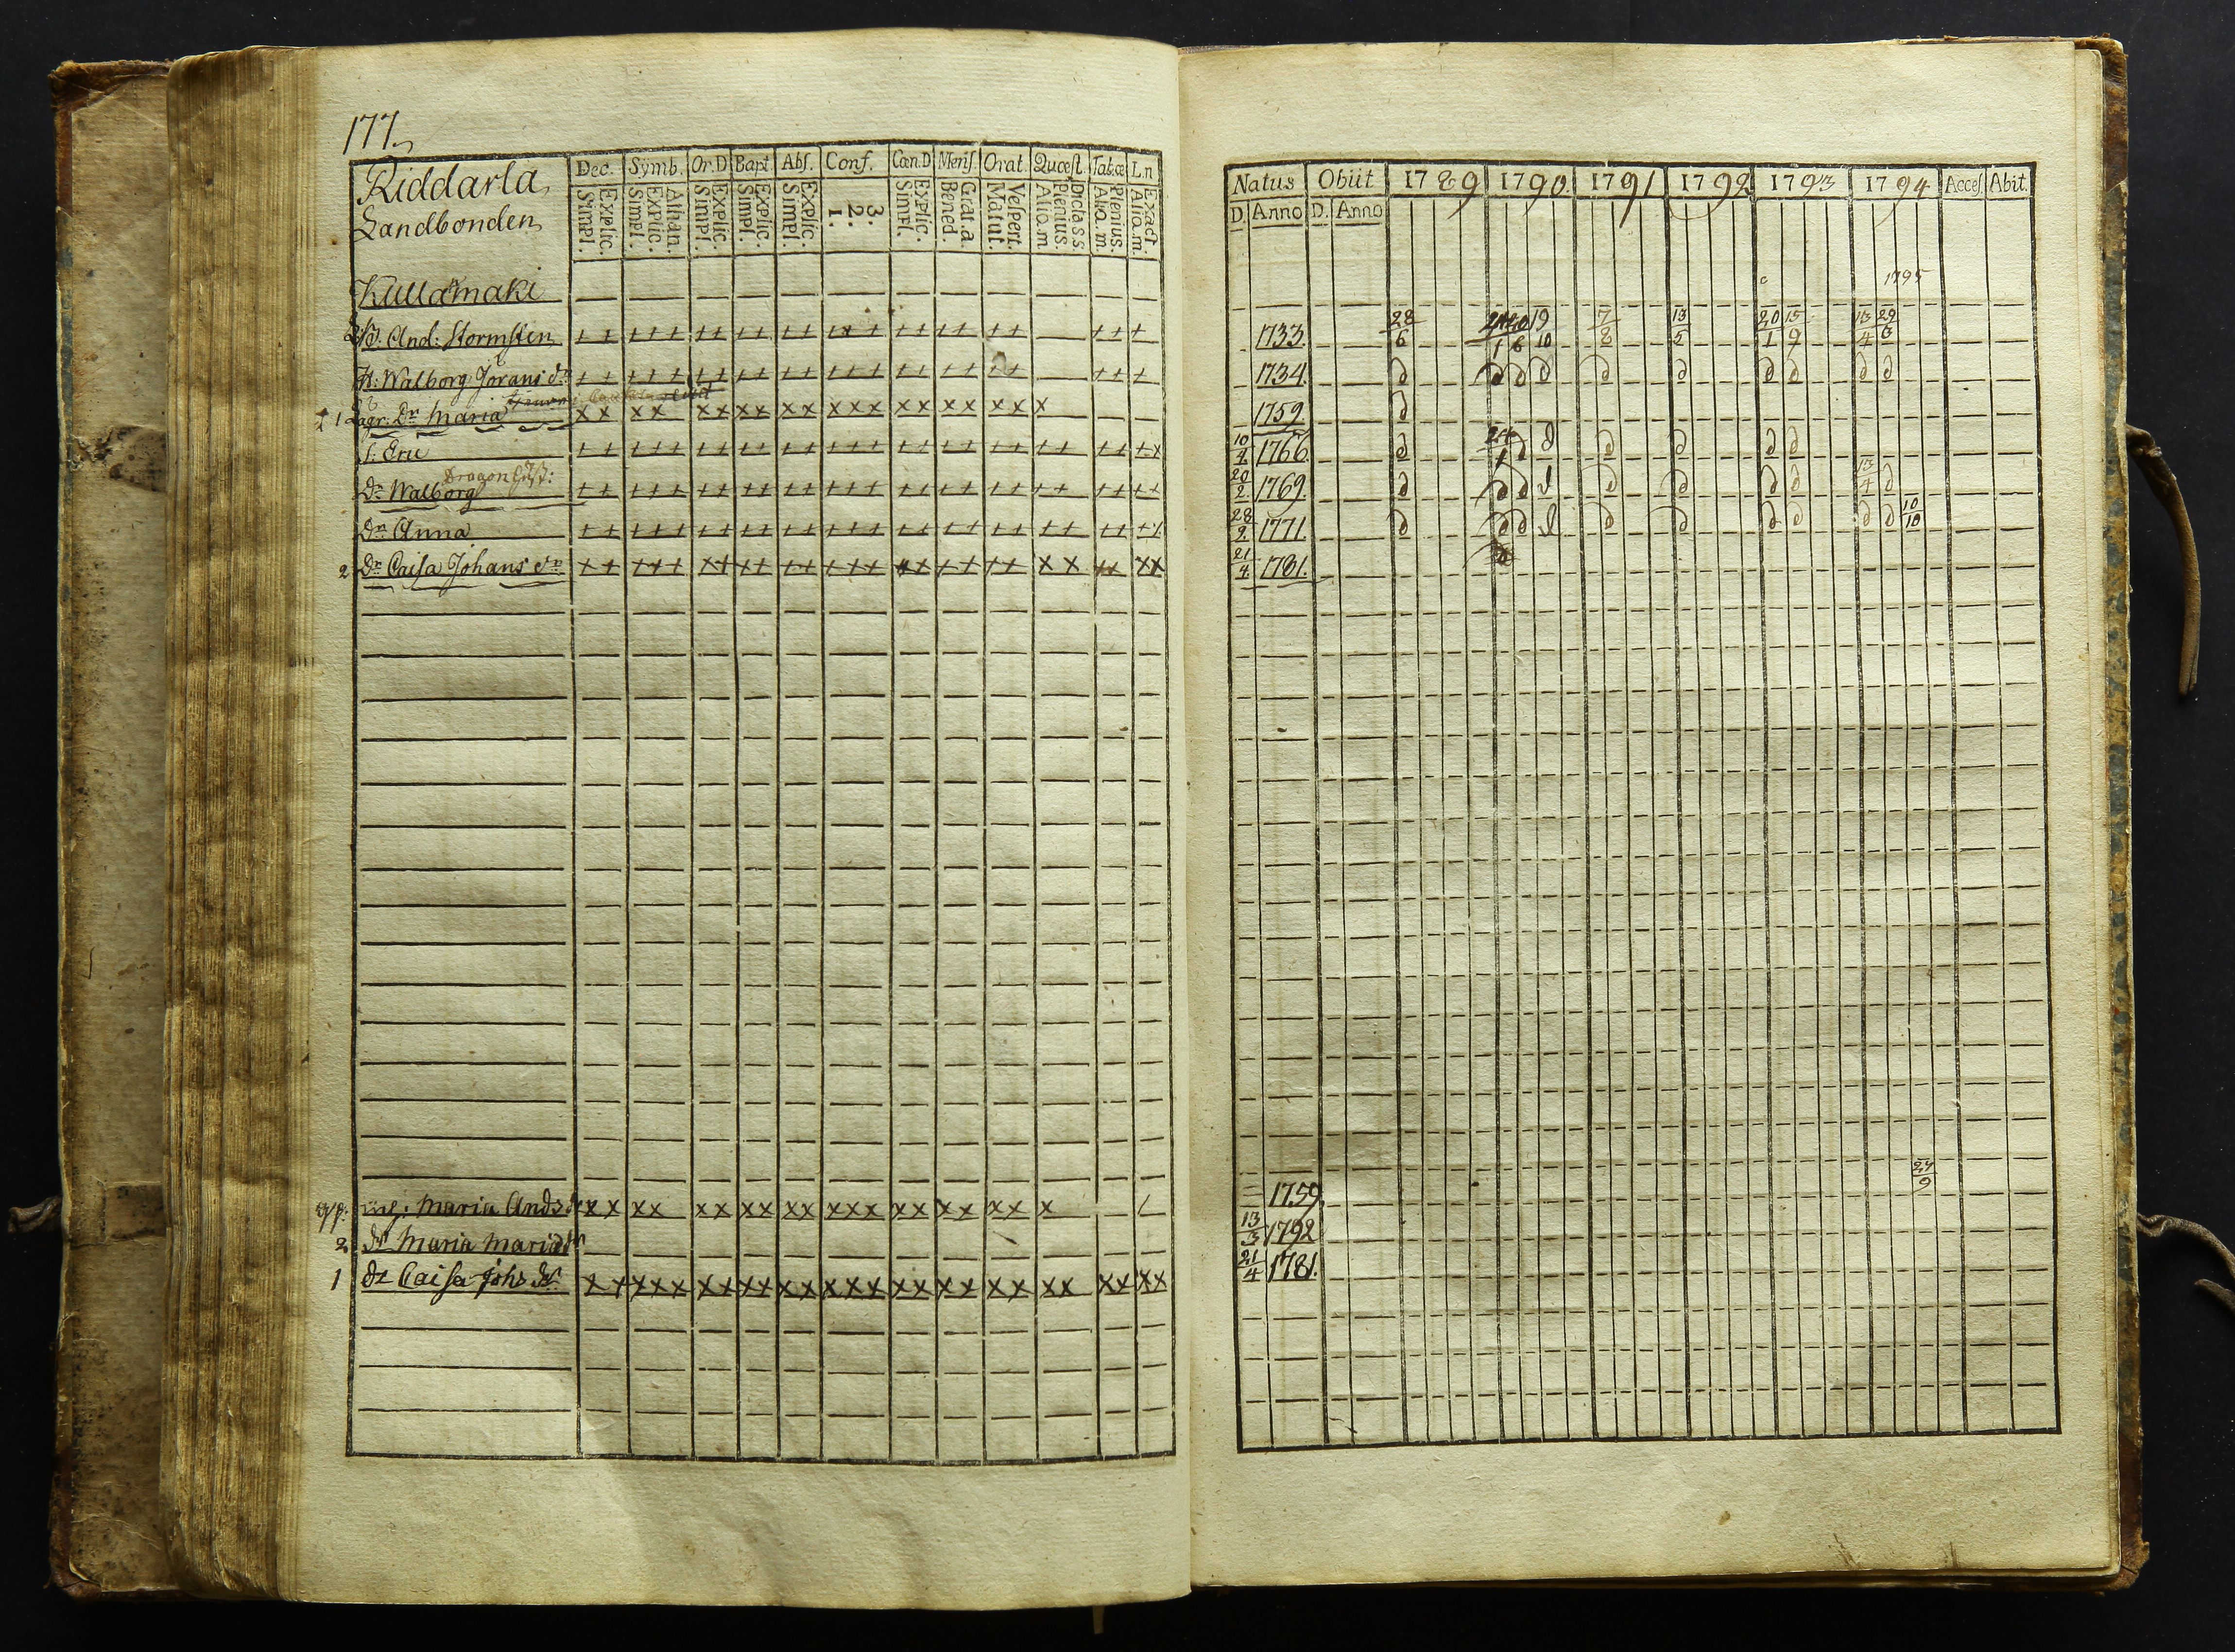 177.
Riddarla
Landbonden
Dec. Symb. Or.D Bapt Abs. Conf. Cœn.D Mens. Orat. Quæst. Tab.œ L.n
Explic. Simpl. Athan. Explic. Simpl. Explic. Simpl. Explic. Simpl. Explic. Simpl. 3. 2. 1. Explic. Simpl. Grat. a. Bened. Vespert. Matut. Dicta s.s. Plenius. Aliq.m Plenius. Aliq. m. Exact. Aliq. m.
Kullamaki
And: Stormsten
H: Walborg Jörans dr
dr Maria
S: Eric
Dragon
Dr Walborg
Dr Anna
2 Dr Caisa Johans dr
Maria Ands dr
2 dr Maria Maria dr
1 dr Caisa Johs dr
Natus Obiit 1789 1790. 1791 1792 1793 1794 Acces. Abit.
D. Anno D. Anno
1795
1733. 28/6 19/10 7/8 13/5 20/1 15/9 13/4 29/3
1734.
1759.
10/4 1766.
20/2 1769. 13/4
28/9 1771. 10/10
21/4 1781.
1759. 27/9
13/3 1792
21/4 1781.